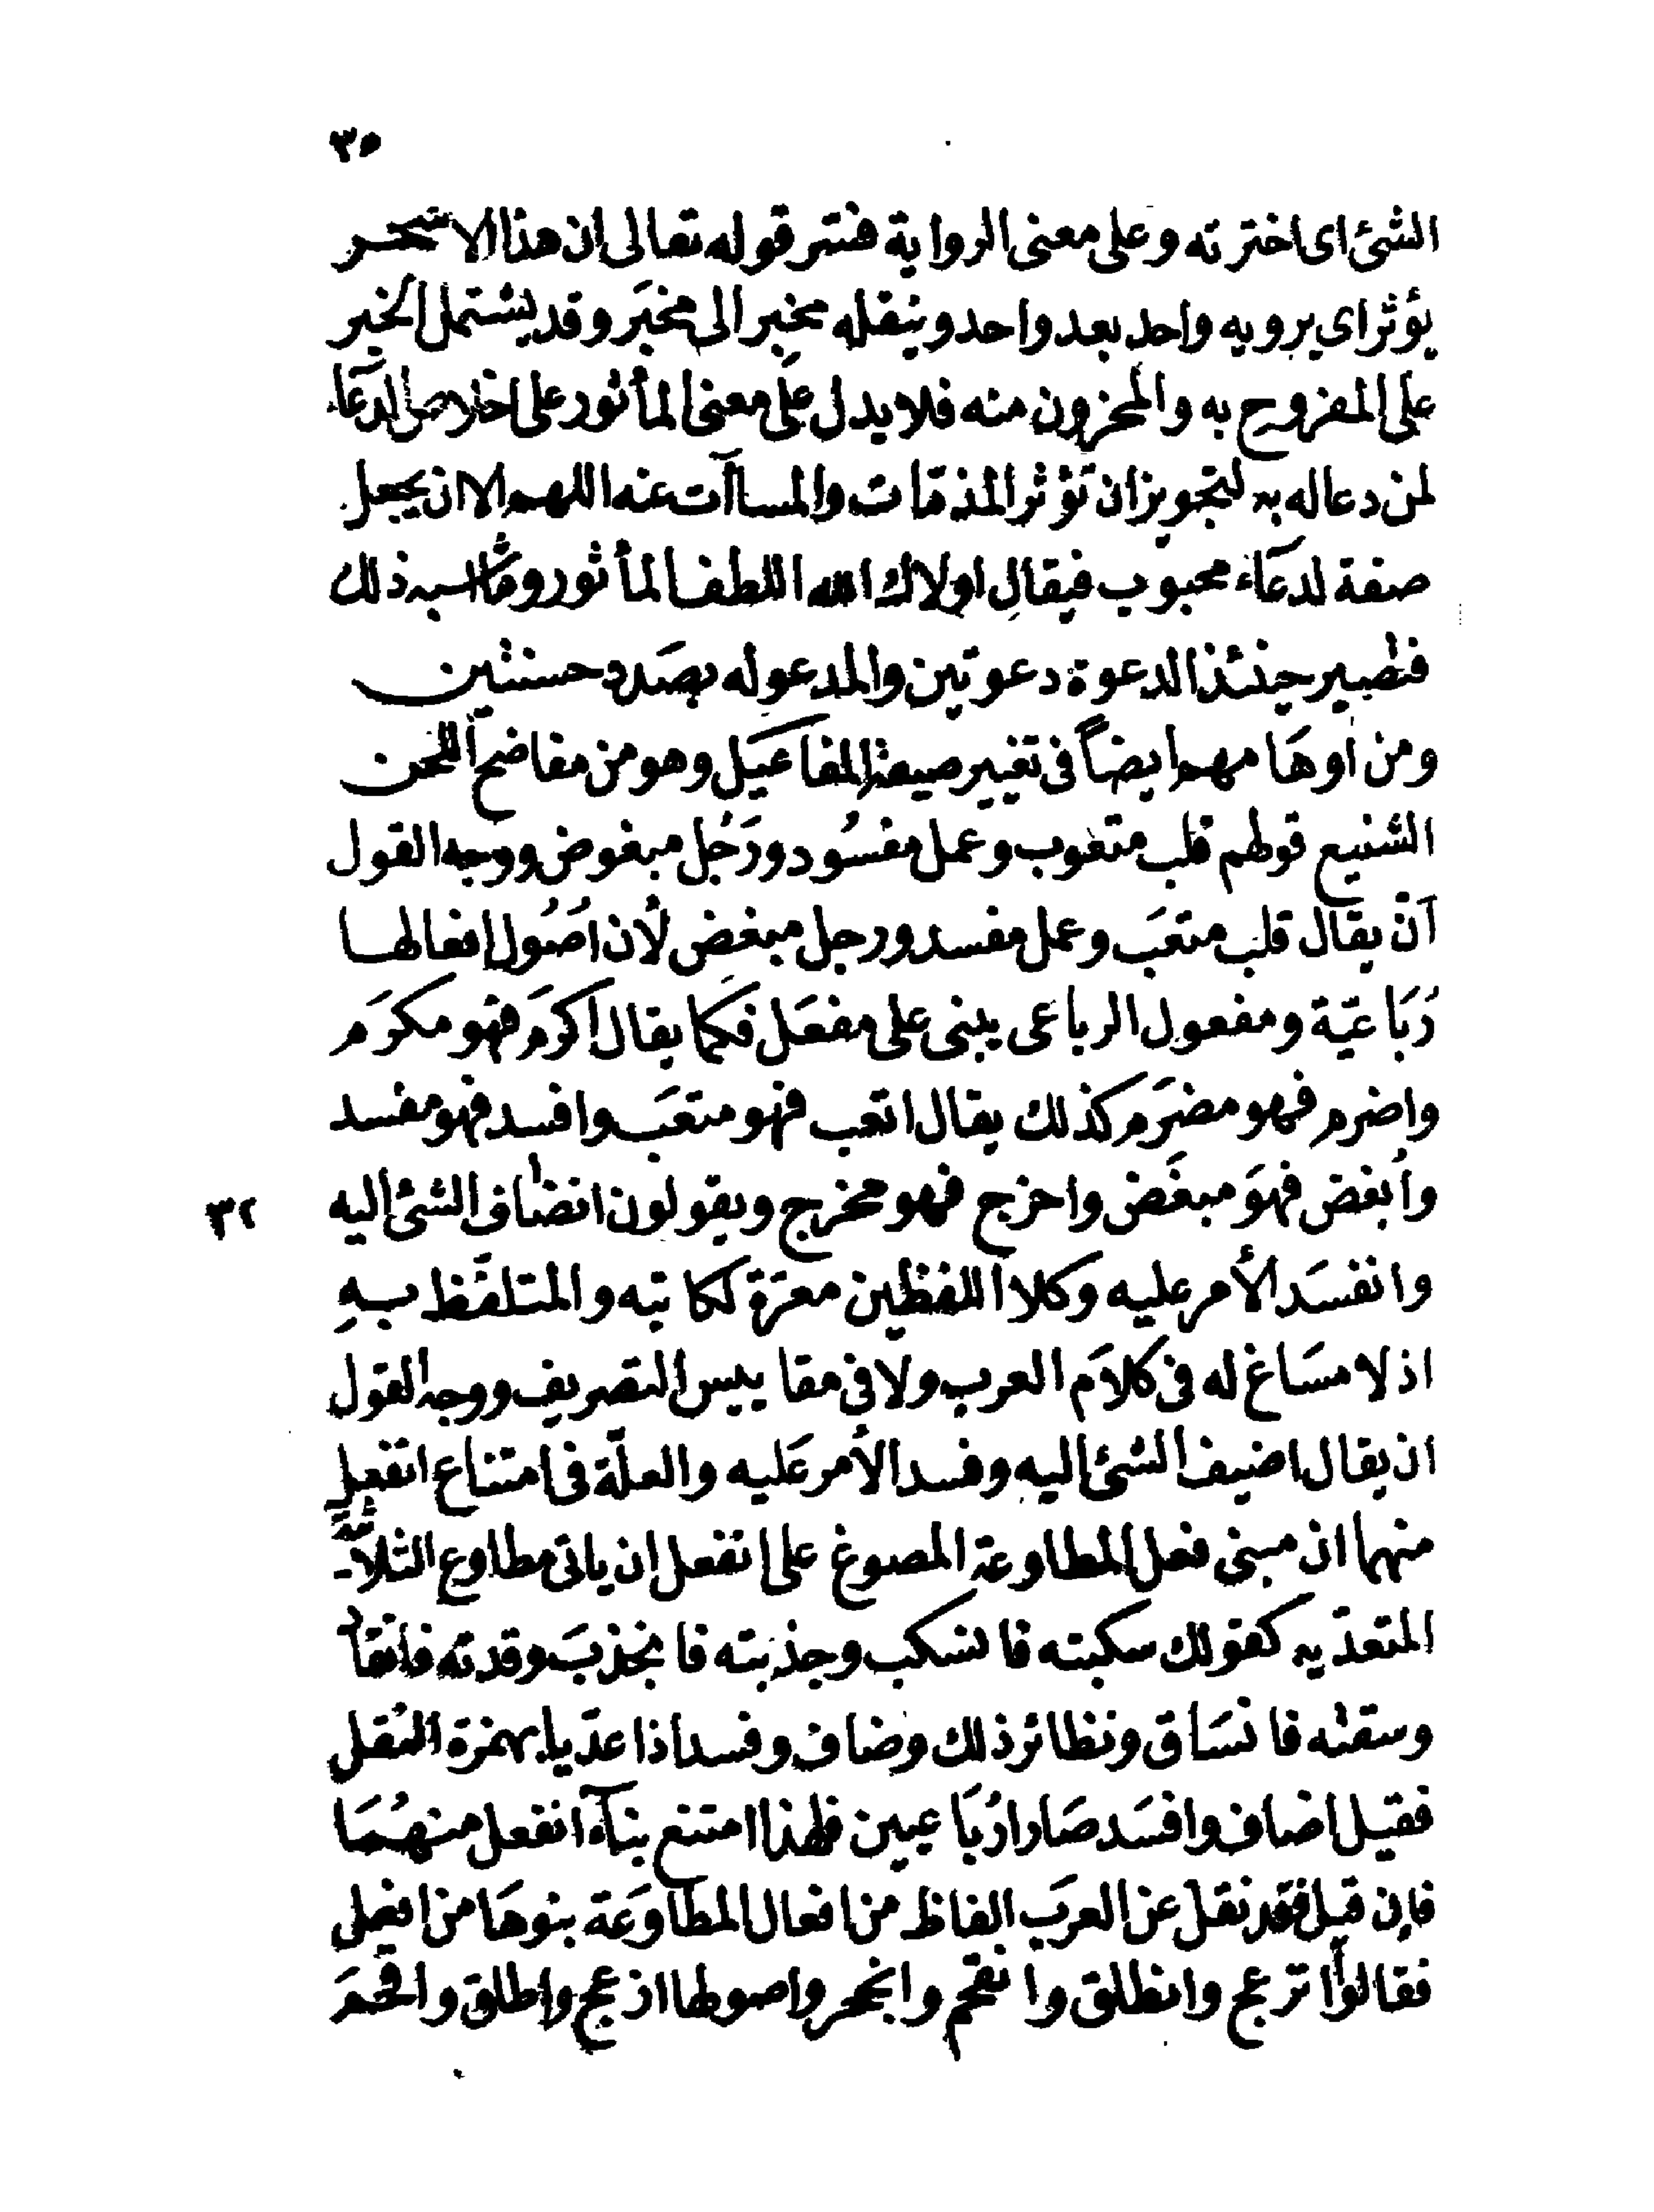 ٣٥
الشئ اى اخترته وعلى معنى الرواية فسّر قوله تعالى ان هذا الا سحر
يؤثر اى يرويه واحد بعد واحد وينقله مخبر الى مخبَر وقد يشتمل الخبر
على المفروح به والمحزون منه فلا يدل على معنى المأثور على اخلاص الدعَاء
لمن دعا له به لتجويز ان تؤثر المذمّات والمساآت عنه اللهم الا ان يجعل
صفة لدعَاء محبوب فيقال اولاك الله اللطف المأثور وما اشبه ذلك
فتصير حينئذ الدعوة دعوتين والمدعو له بصَدد حسنتين
ومن اوهَامهم ايضاً فى تغيير صيغة المفاعيَل وهو من مفاضح اللحن
الشنيع قولهم قلب متعوب وعمل مفسُود ورَجُل مبغوض ووجه القول
آنّ يقال قلب متعَب وعمل مفسد ورجل مبغَض لأن اصُول افعالها
رُبَاعيّة ومفعول الرباعى يبنى على مفعَل فكما يقال اكرَم فهو مكرَم
واضرم فهو مضرَم كذلك يقال اتعب فهو متعَب وافسد فهو مفسد
وأبغض فهوَ مبغَض واخرج فهو مخرج ويقولون انضاف الشئ اليه
٣٢
وانفسَد الأمر عليه وكلا اللفظين معرّة لكاتبه والمتلفّظ بهِ
اذ لا مسَاغ له فى كلاَم العرب ولا فى مقاييس التصريف ووجه القول
ان يقال اضيف الشئ اليه وفسد الأمر عَليه والعلّة فى امتناع انفعل
منهما ان مبنى فعل المطاوعة المصوغ على انفعل ان ياتى مطاوع الثلاثيّة
المتعدّيه كقولك سكبته فانسكب وجذبته فانجذبَ وقدته فانقاد
وسقته فانسَاق ونظائر ذلك وضاف وفسد اذا عدّيا بهمزة النقل
فقيل اضاف وافسَد صَارا رُبَاعيين فلهذا امتنع بنآء انفعل منهُمَا
فإن قيل فقد نقل عن العرَب الفاظ من افعال المطاوَعَة بنوهَا من افعل
فقالوا انزعج وانطلق وانقحم وانجحر واصولها ازعج واطلق واقحَم